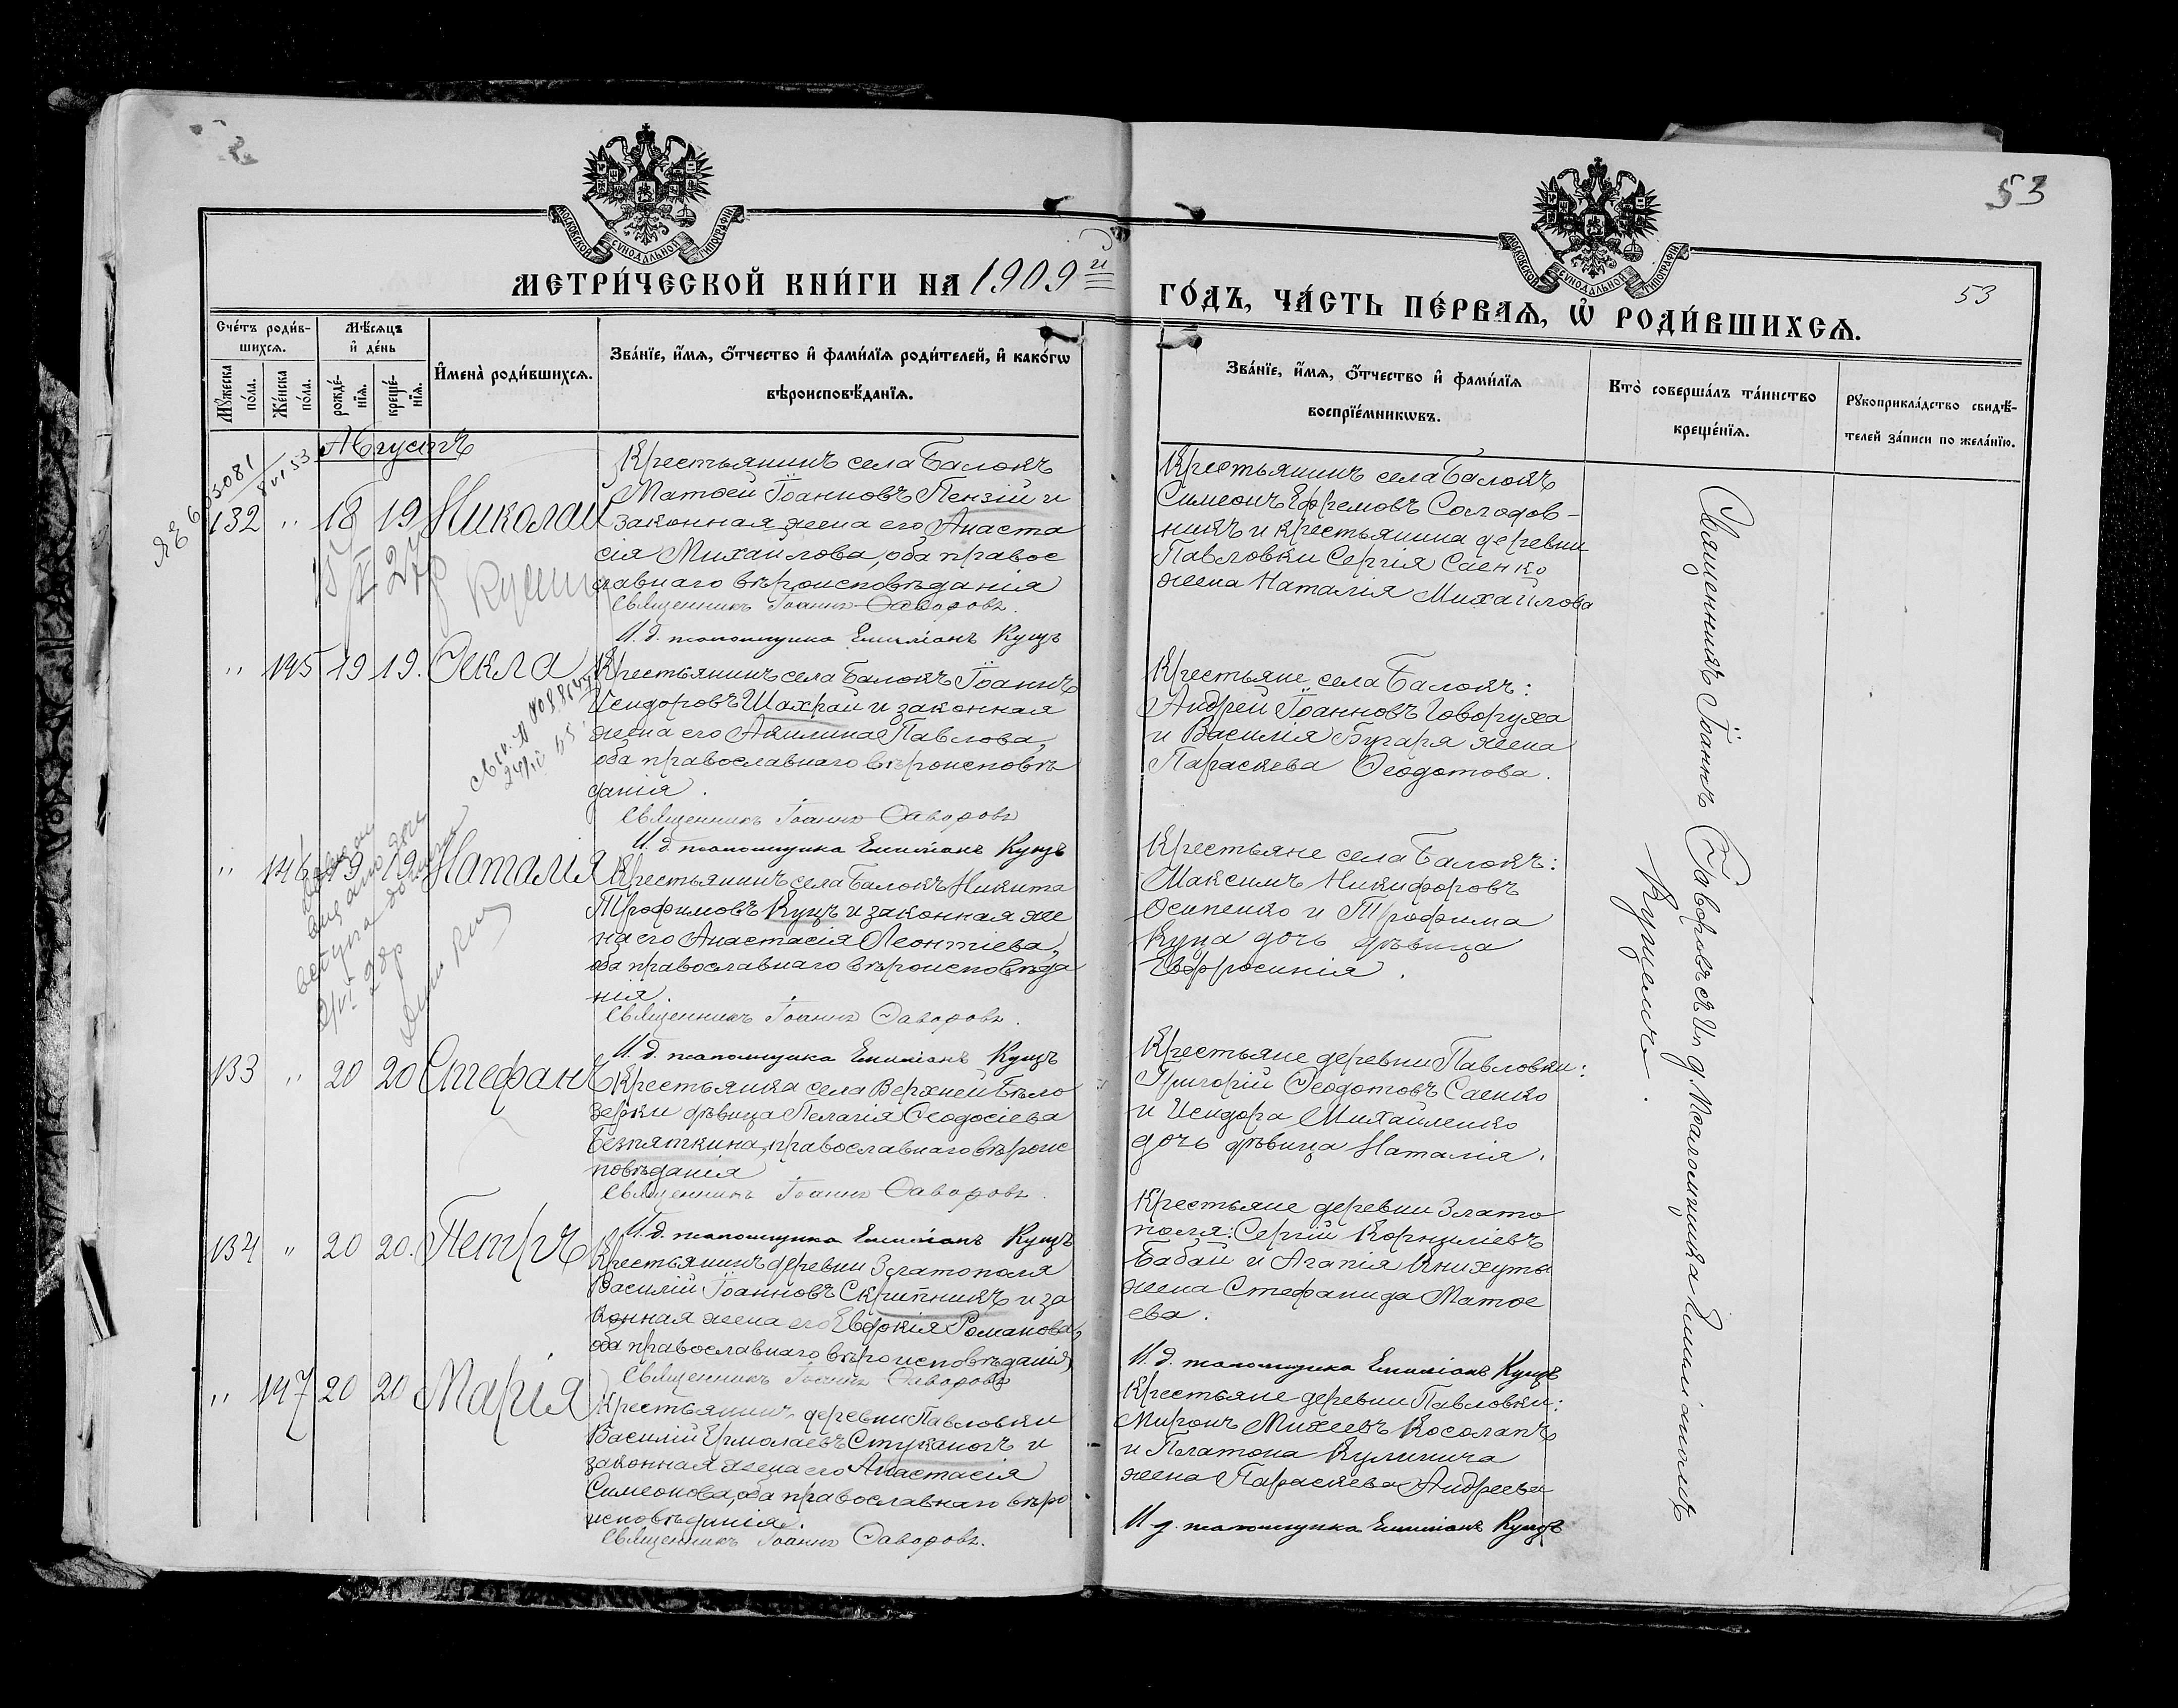 53
МОСКОВСКОЙ СѴНОДАЛЬНОЙ ТИПОГРАФІИ
МОСКОВСКОЙ СѴНОДАЛЬНОЙ ТИПОГРАФІИ
МЕТРИ́ЧЕСКОЙ КНИ́ГИ НА 1909й
ГО́ДЪ, ЧА́СТЬ ПЕ́РВАѦ, Ѡ҆ РОДИ́ВШИХСѦ.
53
Сче́тъ роди́в-
шихсѧ.
Мꙋ́жеска по́ла.
Же́нска по́ла.
Мѣ́сѧцъ
и҆ де́нь
рожде́-
нїѧ.
креще́-
нїѧ.
И҆мена̀ роди́вшихсѧ.
Зва́нїе, и҆́мѧ, ѻ҆́тчество и҆ фами́лїѧ роди́телей, и҆ како́гѡ
вѣроисповѣ́данїѧ.
Зва́нїе, и҆́мѧ, ѻ҆́тчество и҆ фами́лїѧ
воспрїе́мникѡвъ.
Кто̀ соверша́лъ та́инство
креще́нїѧ.
Рꙋкоприкла́дство свидѣ́-
телей за́писи по жела́нїю.
Августъ
132 " 18 19 Николай
Крестьянинъ села Балокъ
Матѳей Іоанновъ Пензій и
законная жена его Анаста
сія Михайлова, оба правос
лавнаго вѣроисповѣданія
Священникъ Іоаннъ Ѳаворовъ.
И. д. псаломщика Емиліанъ Куцъ
Крестьянинъ села Балокъ
Симеонъ Ефремовъ Солодов-
никъ и крестьянина деревни
Павловки Сергія Саенко
жена Наталія Михайлова
" 145 19 19. Ѳекла
Крестьянинъ села Балокъ Іоаннъ
Исидоровъ Шахрай и законная
жена его Акилина Павлова,
оба православнаго вѣроисповѣ
данія.
Священникъ Іоаннъ Ѳаворовъ
И. д. псаломщика Емиліанъ Куцъ
Крестьяне села Балокъ:
Андрей Іоанновъ Говоруха
и Василія Бугаря жена
Параскева Ѳеодотова.
" 146 19 19 Наталія
Крестьянинъ села Балокъ Никита
Трофимовъ Куцъ и законная же
на его Анастасія Леонтіева,
оба православнаго вѣроисповѣда
нія.
Священникъ Іоаннъ Ѳаворовъ.
И. д. псаломщика Емиліанъ Куцъ
Крестьяне села Балокъ:
Максимъ Никифоровъ
Осипенко и Трофима
Куца дочь дѣвица
Евфросинія.
133 " 20 20 Стефанъ
Крестьянка села Верхней Бѣло
зерки дѣвица Пелагія Ѳеодосіева
Безпяткина, православнаго вѣроис
повѣданія
Священникъ Іоаннъ Ѳаворовъ.
И. д. псаломщика Емиліанъ Куцъ
Крестьяне деревни Павловки:
Григорій Ѳеодотовъ Саенко
и Исидора Михайленко
дочь дѣвица Наталія.
134 " 20 20. Петръ
Крестьянинъ деревни Златополя
Василій Іоанновъ Скрипникъ и за
конная жена его Евдокія Романова,
оба православнаго вѣроисповѣданія
Священникъ Іоаннъ Ѳаворовъ
Крестьяне деревни Злато
поля: Сергій Корниліевъ
Бабай и Агапія Книхуты
жена Стефанида Матѳе
ева.
И. д. псаломщика Емиліанъ Куцъ
" 147 20 20 Марія
Крестьянинъ деревни Павловки
Василій Ермолаевъ Стуканогъ и
законная жена его Анастасія
Симеонова, оба православнаго вѣро
исповѣданія.
Священникъ Іоаннъ Ѳаворовъ.
Крестьяне деревни Павловки:
Миронъ Михеевъ Косолапъ
и Платона Кулинича
жена Параскева Андреева
И д. псаломщика Емиліанъ Куцъ
Священникъ Іоаннъ Ѳаворовъ съ и. д. псаломщика Емиліаномъ
Куцемъ.